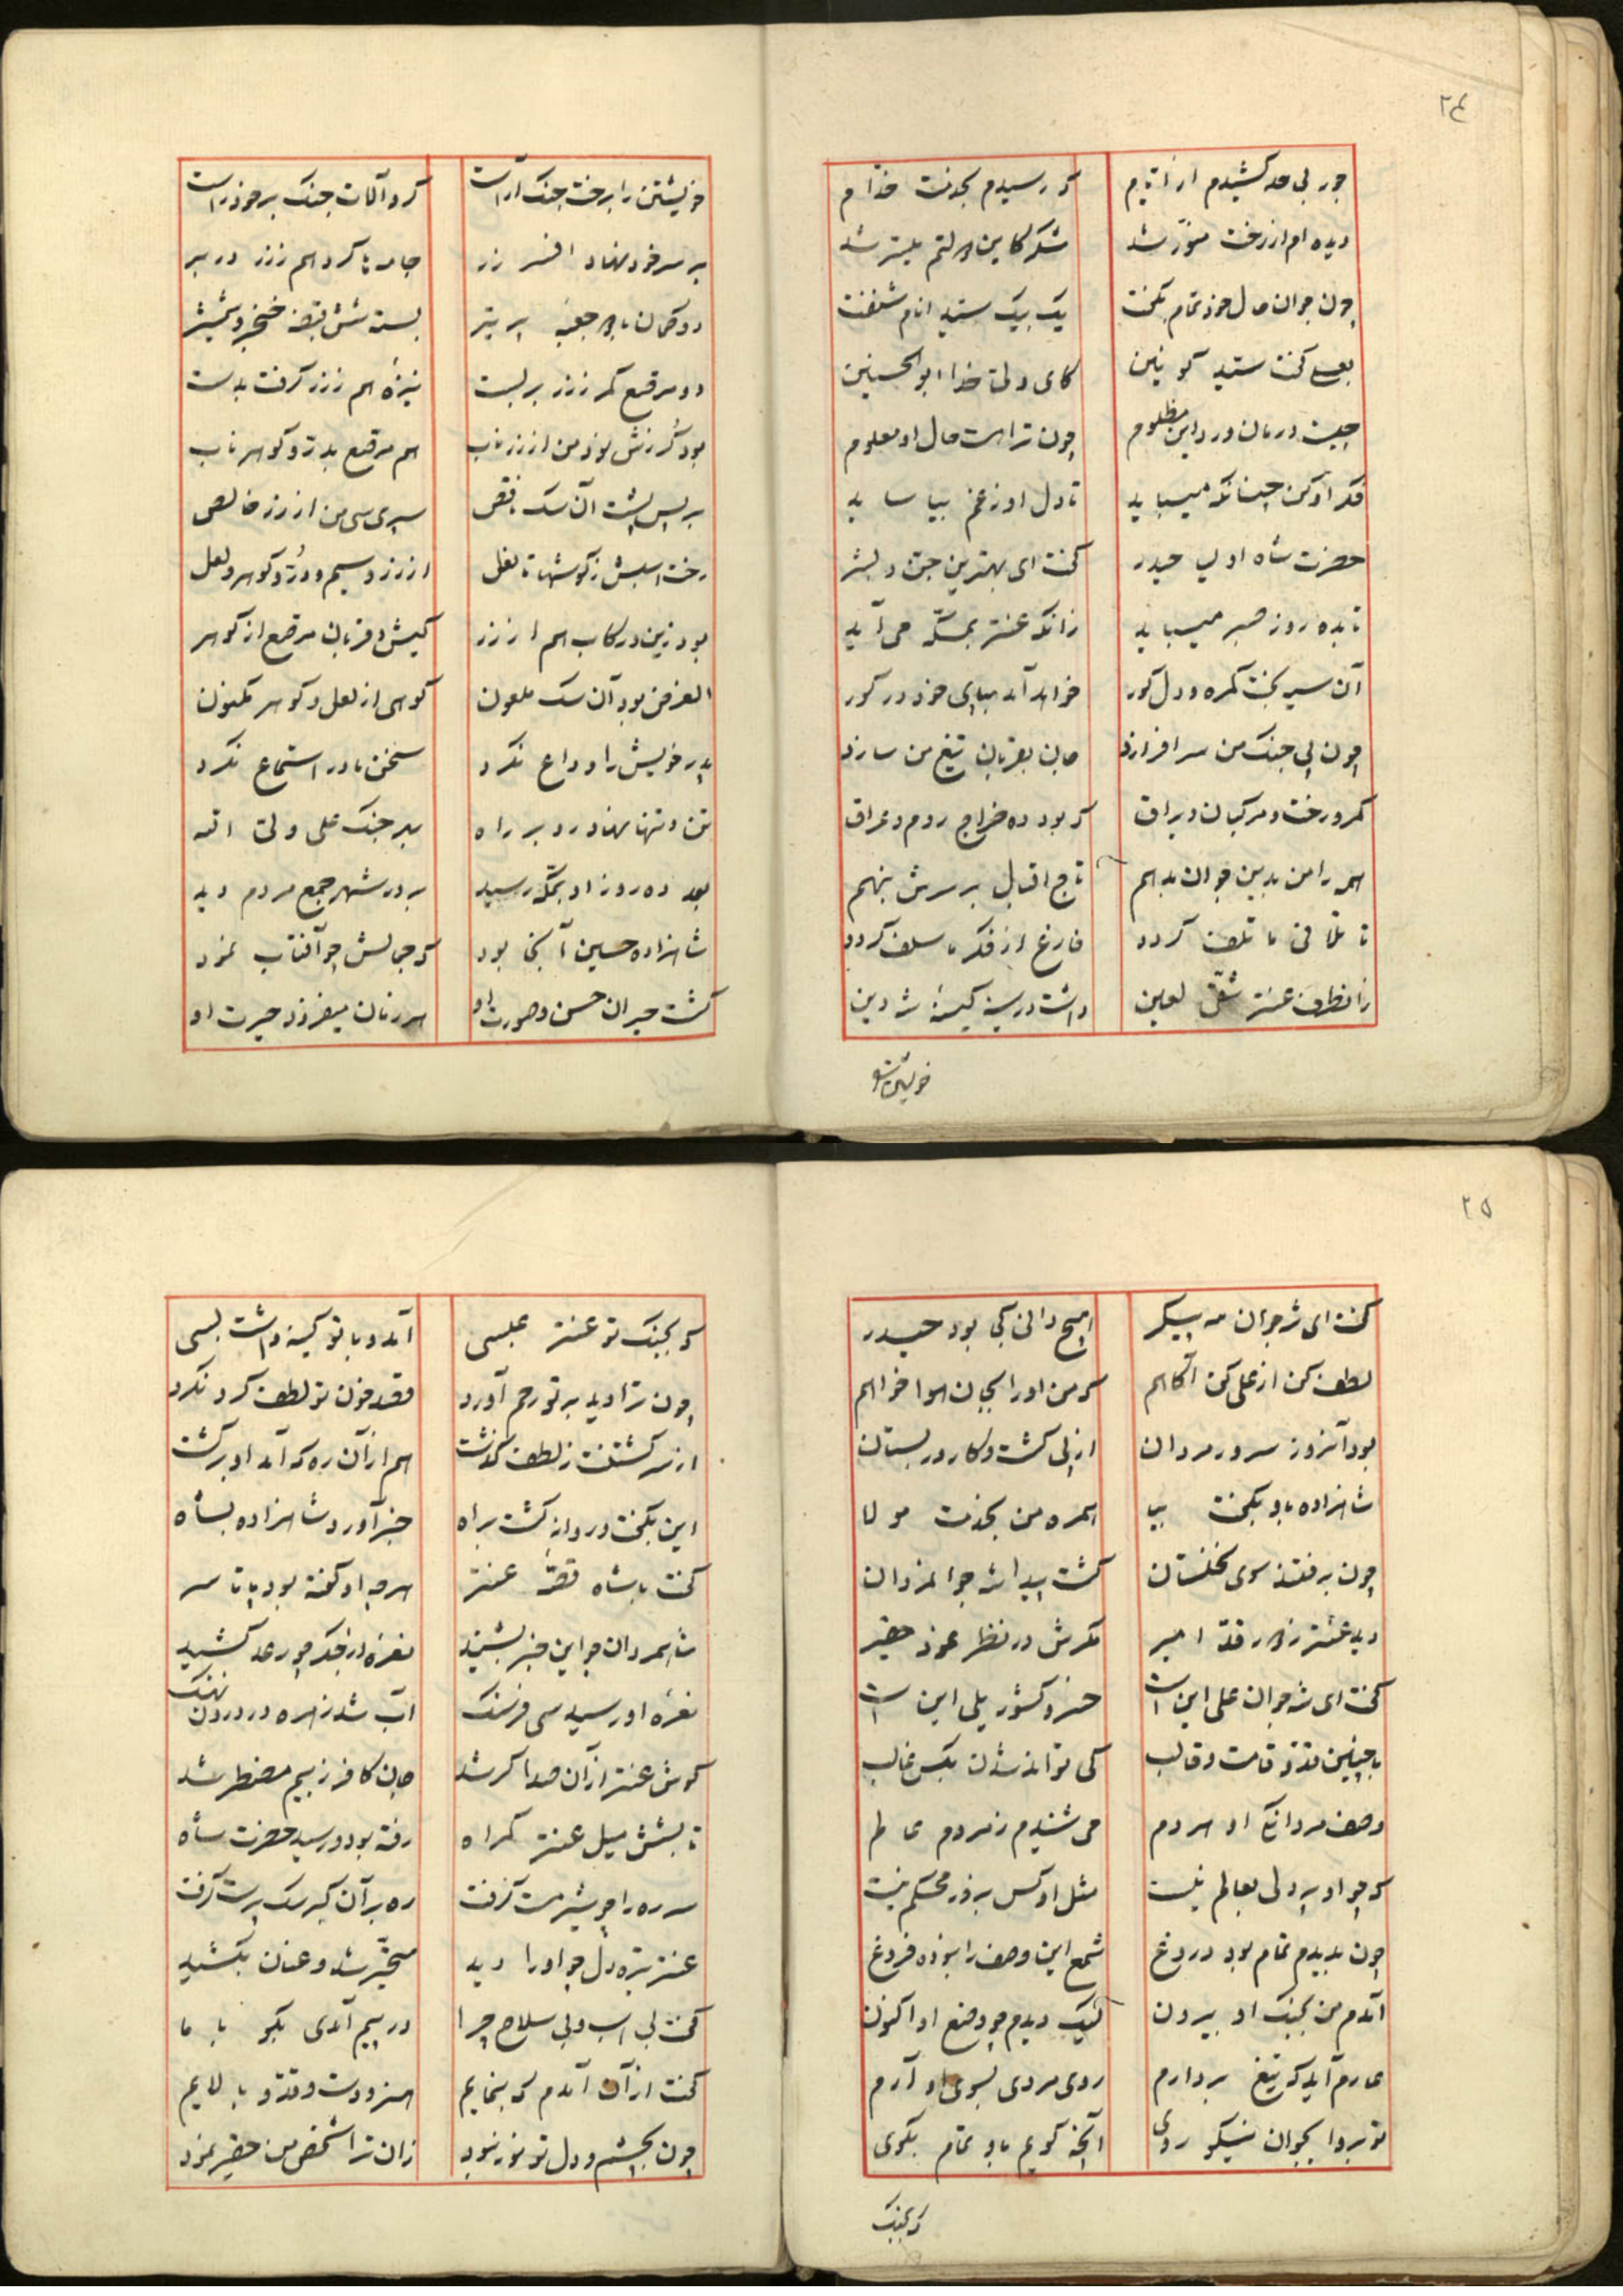 ۲۴
جور بی حد کشیدم از ایام
که رسیدم بخدمت خدام
دیده ام از رخت منور شد
شکر کاین دولتم میسر شد
چون جوان حال خود تمام بگفت
یک بیک سید انام شنفت
بعلی گفت سید کونین
کای ولی خدا ابوالحسنین
چیست درمان درد این مظلوم
چون تراست حال او معلوم
فکر او کن چنانکه میباید
تا دل او ز غم بیاساید
حضرت شاه اولیا حیدر
گفت ای بهترین جن و بشر
تا بده روز صبر میباید
زانکه عنتر بمکه می آید
آن سیه بخت گمره و دل کور
خواهد آمد بپای خود در گور
چون پی جنگ من سر افرازد
جان بقربان تیغ من سازد
کمر و رخت و مرکبان و یراق
که بود ده خراج روم و عراق
همه را من بدین جوان بدهم
تاج اقبال بر سرش بنهم
تا تلافی ما تلف گردد
فارغ از فکر ما سلف گردد
زانطرف عنتر شقی لعین
داشت در سینه کینهٔ شه دین
خویشتن
خویشتن را برخت جنگ آراست
کرد آلات جنگ بر خود راست
بر سر خود نهاد افسر زر
جامه ها کرد هم ززر در بر
دو کمان با دو جعبه پر تیر
بست شش قبضه خنجر و شمشیر
دو مرصع کمر ززر بر بست
نیزهٔ هم ززر گرفت بدست
بود گرزش نود من از زر ناب
هم مرصع بدر و گوهر ناب
بر پس پشت آن سگ ناقص
سپری سی من از زر خالص
رخت اسبش ز گوشها تا نعل
از زر و سیم و در و گوهر و لعل
بود زین و رکاب هم از زر
کیش و قربان مرصع از گوهر
الغرض بود آن سگ ملعون
کوهی از لعل و گوهر مکنون
پدر خویش را وداع نکرد
سخن مادر استماع نکرد
تن و تنها نهاد رو بر راه
بهر جنگ علی ولی اله
بعد ده روز او بمکه رسید
بر در شهر جمع مردم دید
شاهزاده حسین آنجا بود
که جمالش چو آفتاب نمود
گشت حیران حسن و صورت او
هر زمان میفزود حیرت او
۲۵
گفت ای شه جوان مه پیکر
هیچ دانی کجا بود حیدر
لطف کن از علی کن آگاهم
که من او را بجان هوا خواهم
بود آنروز سرور مردان
از پی کشت و کار در بستان
شاهزاده باو بگفت بیا
همره من بخدمت مولا
چون برفتند سوی نخلستان
گشت پیدا شه جوانمردان
دید عنتر ز دور قد امیر
مگرش در نظر نمود حقیر
گفت ای شه جوان علی این است
خسرو کشور یلی این است
با چنین قد و قامت و قالب
کی تواند شدن بکس غالب
وصف مردانگی او هر دم
می شنیدم ز مردم عالم
که چو او پر دلی بعالم نیست
مثل او کس بزور محکم نیست
چون بدیدم تمام بود دروغ
شمع این وصف را نبوده فروغ
آمدم من بجنگ او بیرون
لیک دیدم چو وضع او اکنون
عارم آید که تیغ بردارم
روی مردی بسوی او آرم
تو برو ای جوان نیکو روی
آنچه گویم باو تمام بگوی
که بجنگ
که بجنگ تو عنتر عبسی
آمد و با تو کینه داشت بسی
چون ترا دید بر تو رحم آورد
قصد خون تو لطف کرد نکرد
از سر کشتنت ز لطف گذشت
هم از آن ره که آمد او برگشت
این بگفت و روانه گشت براه
خبر آورد شاهزاده بشاه
گفت با شاه قصهٔ عنتر
هر چه او گفته بود پا تا سر
شاه مردان چو این خبر بشنید
نعره از جگر چو رعد کشید
نعرهٔ او رسید سی فرسنگ
آب شد زهره در درون نهنگ
گوش عنتر از آن صدا کر شد
جان کافر ز بیم مضطر شد
تا بشش میل عنتر گمراه
رفته بود و رسید حضرت شاه
سر ره را چو شیر مست گرفت
ره بر آن گبر سگ پرست گرفت
عنتر تیره دل چو او را دید
متحیر شد و عنان بکشید
گفت بی اسب و بی سلاح چرا
در پیم آمدی بگو با ما
گفت از آن آمدم که بنمایم
هنر و دست و قد و بالایم
چون بچشم و دل تو نور نبود
زان ترا شخص من حقیر نمود